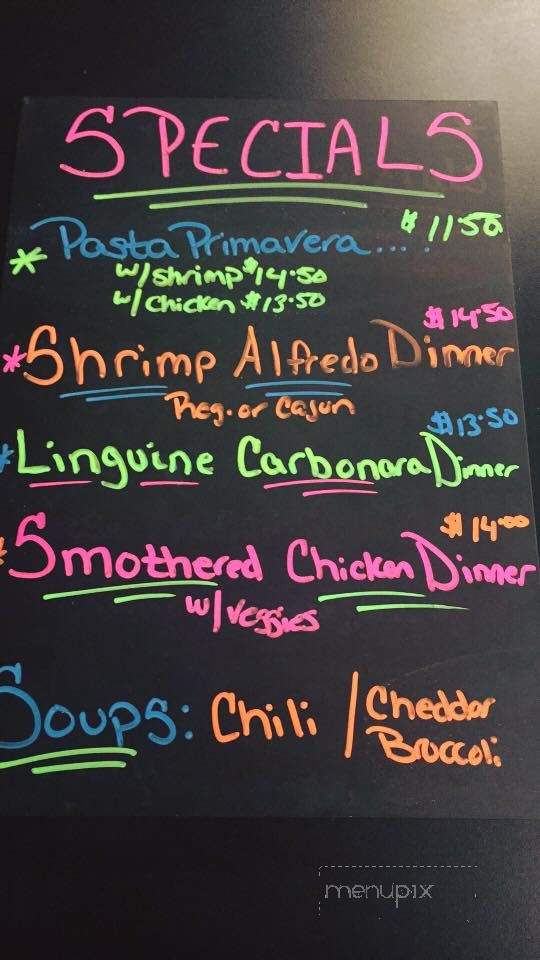 SPECIALS
* Pasta Primavera.... $11.50
w/shrimp $14.50
w/chicken $13.50
$14.50
*Shrimp Alfredo Dinner
Reg. or Cajun
$13.50
*Linguine Carbonara Dinner
$14.00
*Smothered Chicken Dinner
w/veggies
Soups: Chili / Cheddar
Broccoli
menupix